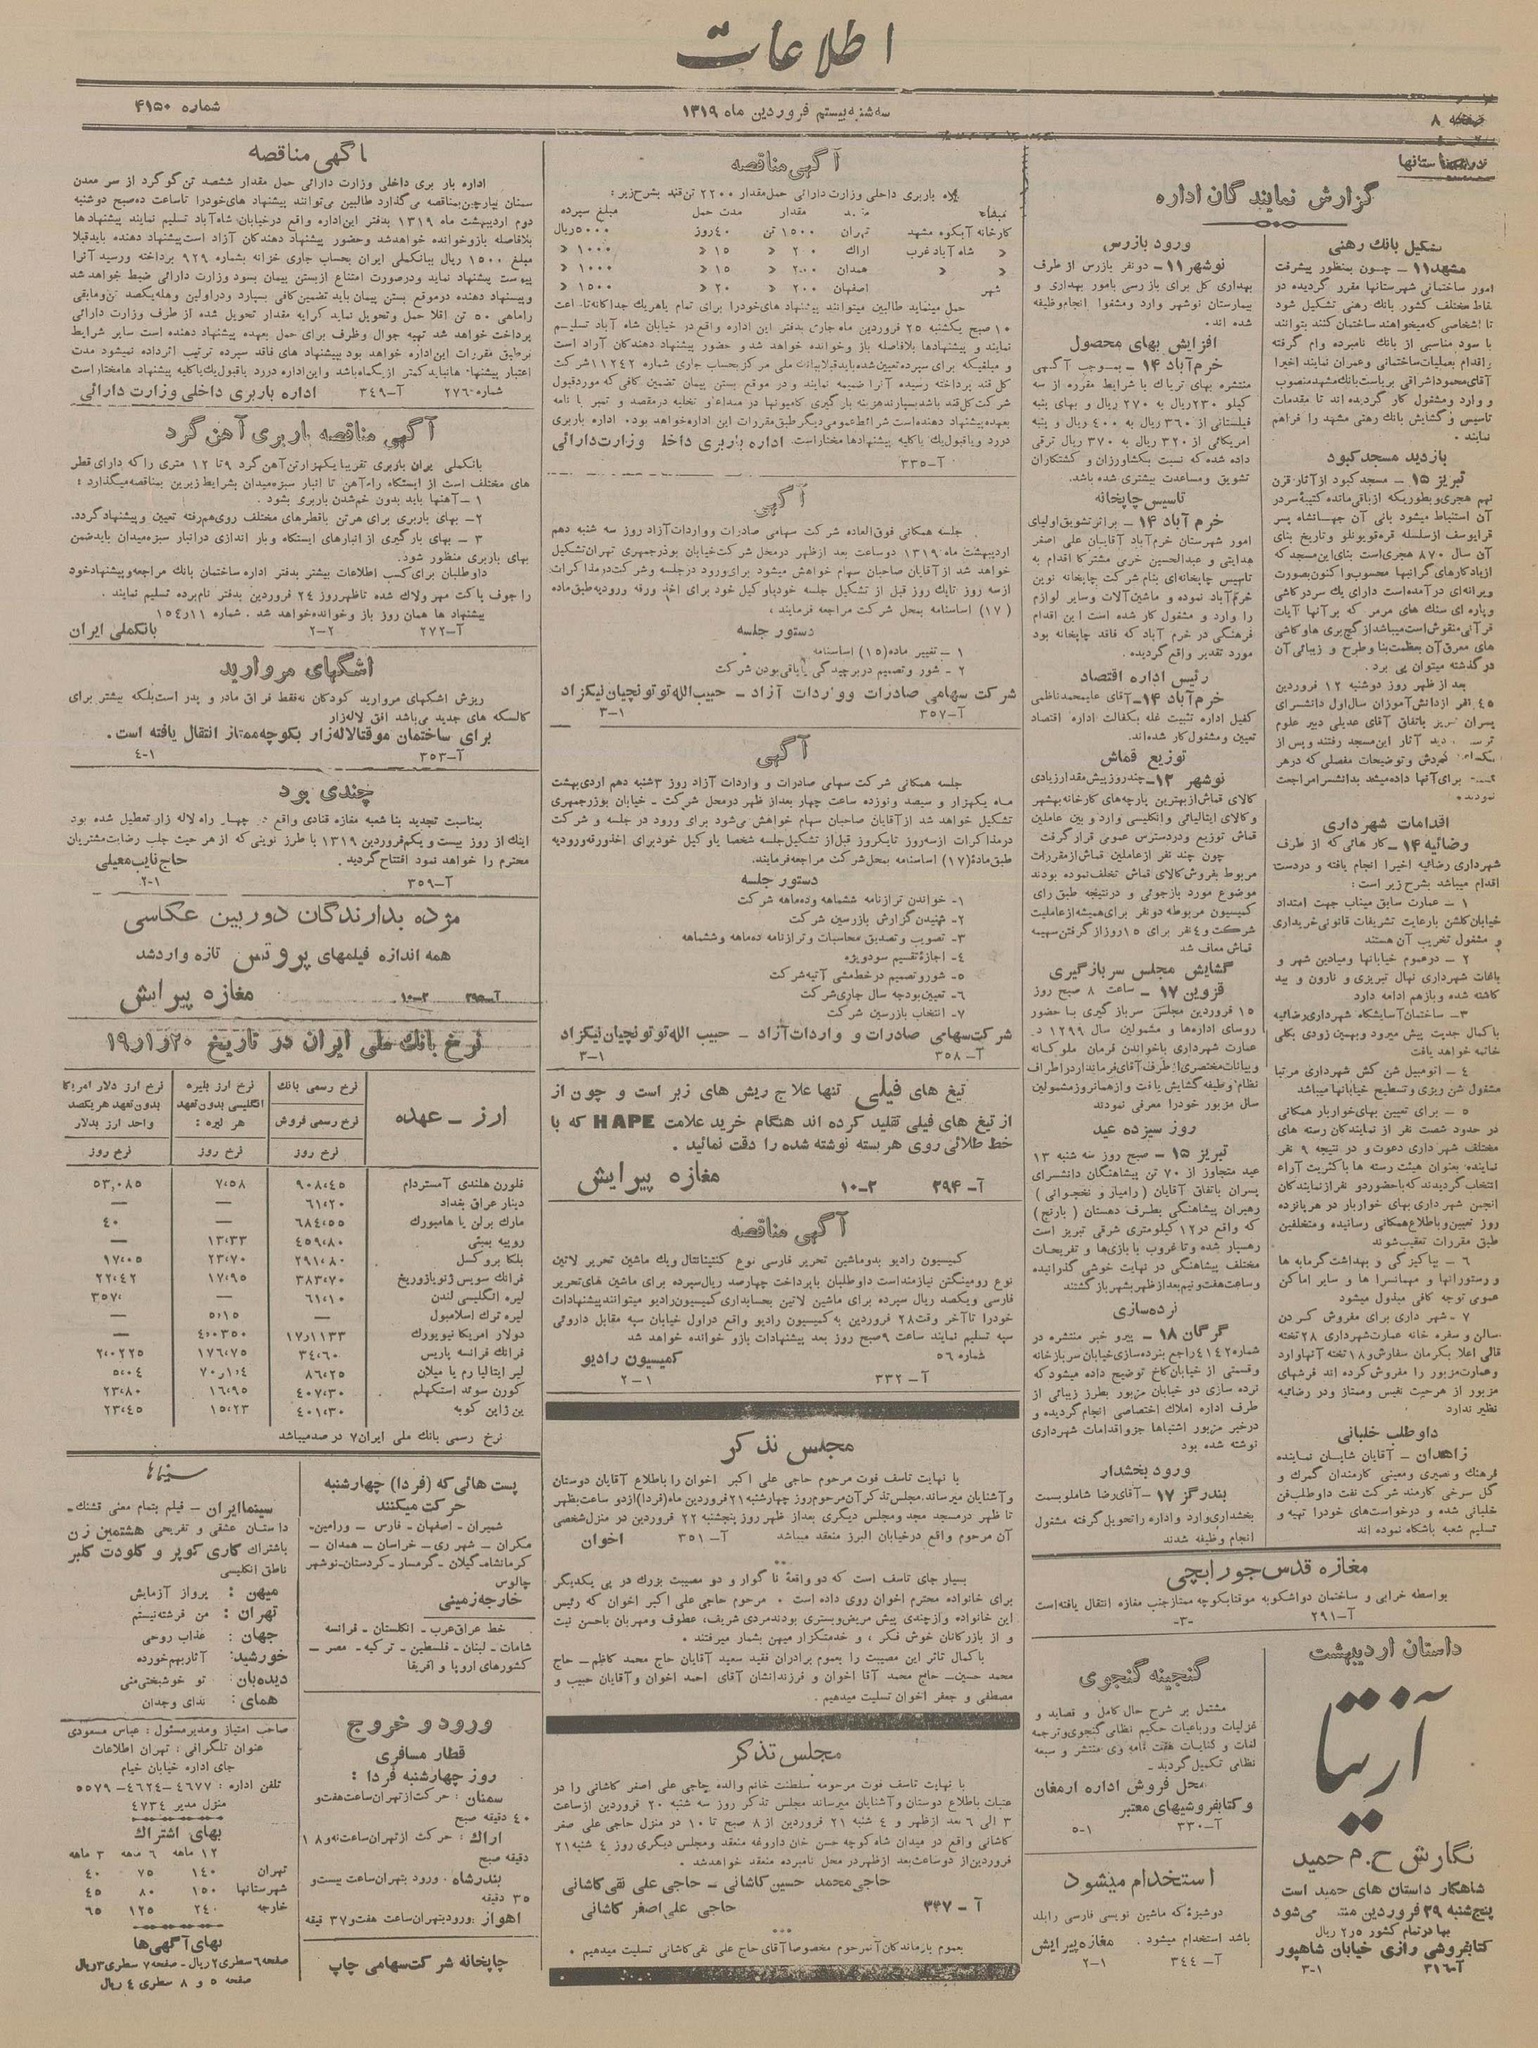 اطلاعات
صفحه ۸
سه شنبه بیستم فروردین ماه ۱۳۱۹
شماره ۴۱۵۰
گزارش نمایندگان اداره
تشکیل بانك رهنی
مشهد ۱۱ - چون بمنظور پیشرفت
امور ساختمانی شهرستانها مقرر گردیده در
نقاط مختلف کشور بانك رهنی تشکیل شود
تا اشخاصی که میخواهند ساختمان کنند بتوانند
با سود مناسبی از بانك نامبرده وام گرفته
و اقدام بعملیات ساختمانی و عمران نمایند اخیرا
آقای محمود اشراقی بریاست بانك مشهد منصوب
و وارد و مشغول کار گردیده اند تا مقدمات
تاسیس و گشایش بانك رهنی مشهد را فراهم
نمایند .
بازدید مسجد کبود
تبریز ۱۵ - مسجد کبود از آثار قرن
نهم هجری و بطوریکه از باقی مانده کتیبهٔ سر در
آن استنباط میشود بانی آن جهانشاه پسر
قرایوسف از سلسله قره قویونلو و تاریخ بنای
آن سال ۸۷۰ هجری است بنای این مسجد که
از یادکارهای گرانبها محسوب و اکنون بصورت
ویرانه ای در آمده است دارای یك سر در کاشی
و پاره ای سنك های مرمر که بر آنها آیات
قرآنی منقوش است میباشد از گچ بری ها و کاشی
های معرق آن بعظمت بنا و طرح و زیبائی آن
در گذشته میتوان پی برد .
بعد از ظهر روز دوشنبه ۱۲ فروردین
۴۵ نفر از دانش آموزان سال اول دانشسرای
پسران تبریز باتفاق آقای عدیلی دبیر علوم
اقدامات شهرداری
رضائیه ۱۴ - کار هائی که از طرف
شهرداری رضائیه اخیرا انجام یافته و در دست
اقدام میباشد بشرح زیر است :
۱ - عمارت سابق میناب جهت امتداد
خیابان گلشن با رعایت تشریفات قانونی خریداری
و مشغول تخریب آن هستند
۲ - در عموم خیابانها و میادین شهر و
باغات شهرداری نهال تبریزی و نارون و بید
کاشته شده و باز هم ادامه دارد
۳ - ساختمان آسایشگاه شهرداری رضائیه
با کمال جدیت پیش میرود و بهمین زودی بکلی
خاتمه خواهد یافت
۴ - اتومبیل شن کش شهرداری مرتبا
مشغول شن ریزی و تسطیح خیابانها میباشد
۵ - برای تعیین بهای خواربار همگانی
در حدود شصت نفر از نمایندگان رسته های
مختلف شهرداری دعوت و در نتیجه ۹ نفر
نماینده بعنوان هیئت رسته ها با کثریت آراء
انتخاب گردیدند که با حضور دو نفر از نمایندگان
انجمن شهرداری بهای خواربار در هر پانزده
روز تعیین و باطلاع همگانی رسانیده و متخلفین
طبق مقررات تعقیب شوند
۶ - بپاکیزگی و بهداشت گرمابه ها
و رستورانها و مهمانسرا ها و سایر اماکن
عمومی توجه کافی مبذول میشود
۷ - شهرداری برای مفروش کردن
سالن و سفره خانه عمارت شهرداری ۲۸ تخته
قالی اعلا بکرمان سفارش و ۱۸ تخته آنها وارد
و عمارت مزبور را مفروش کرده اند فرشهای
مزبور از هر حیث نفیس و ممتاز و در رضائیه
نظیر ندارد
داوطلب خلبانی
زاهدان - آقایان شایان نماینده
فرهنك و نصیری و معینی کارمندان گمرك و
گل سرخی کارمند شرکت نفت داوطلب فن
خلبانی شده و درخواست های خود را تهیه و
تسلیم شعبه باشگاه نموده اند
ورود بازرس
نوشهر ۱۱ - دو نفر بازرس از طرف
بهداری کل برای بازرسی بامور بهداری و
بیمارستان نوشهر وارد و مشغول انجام وظیفه
شده اند .
افزایش بهای محصول
خرم آباد ۱۴ - بموجب آگهی
منتشره بهای تریاك با شرایط مقرره از سه
کیلو ۲۳۰ ریال به ۲۷۰ ریال و بهای پنبه
فیلستانی از ۳۶۰ ریال به ۴۰۰ ریال و پنبه
امریکائی از ۳۲۰ ریال به ۳۷۰ ریال ترقی
داده شده که نسبت بکشاورزان و کشتکاران
تشویق و مساعدت بیشتری شده باشد.
تاسیس چاپخانه
خرم آباد ۱۴ - بر اثر تشویق اولیای
امور شهرستان خرم آباد آقایان علی اصغر
هدایتی و عبدالحسین خرمی مشترکا اقدام به
تاسیس چاپخانه ای بنام شرکت چاپخانه نوین
خرم آباد نموده و ماشین آلات و سایر لوازم
را وارد و مشغول کار شده است این اقدام
فرهنگی در خرم آباد که فاقد چاپخانه بود
مورد تقدیر واقع گردیده .
رئیس اداره اقتصاد
خرم آباد ۱۴ - آقای علیمحمد ناظمی
کفیل اداره تثبیت غله بکفالت اداره اقتصاد
تعیین و مشغول کار شده اند.
توزیع قماش
نوشهر ۱۲ - چند روز پیش مقدار زیادی
کالای قماش از بهترین پارچه های کارخانه بهشهر
و کالای ایتالیائی و انگلیسی وارد و بین عاملین
قماش توزیع و در دسترس عمومی قرار گرفت
چون چند نفر از عاملین قماش از مقررات
مربوط بفروش کالای قماش تخلف نموده بودند
موضوع مورد بازجوئی و در نتیجه طبق رای
کمیسیون مربوطه دو نفر برای همیشه از عاملیت
شرکت و ۴ نفر برای ۱۵ روز از گرفتن سهمیه
قماش معاف شد
گشایش مجلس سربازگیری
قزوین ۱۷ - ساعت ۸ صبح روز
۱۵ فروردین مجلس سربازگیری با حضور
روسای اداره ها و مشمولین سال ۱۲۹۹ در
عمارت شهرداری با خواندن فرمان ملوکانه
و بیانات مختصری از طرف آقای فرماندار در اطراف
نظام وظیفه گشایش یافت و از همان روز مشمولین
سال مزبور خود را معرفی نمودند
روز سیزده عید
تبریز ۱۵ - صبح روز سه شنبه ۱۳
عید متجاوز از ۷۰ تن پیشاهنگان دانشسرای
پسران باتفاق آقایان ( رامیار و نخجوانی )
رهبران پیشاهنگی بطرف دهستان ( بارنج )
که واقع در ۱۲ کیلومتری شرقی تبریز است
رهسپار شده و تا غروب با بازیها و تفریحات
مختلف پیشاهنگی در نهایت خوشی گذرانیده
و ساعت هفت و نیم بعد از ظهر بشهر باز گشتند
نرده سازی
گرگان ۱۸ - پیرو خبر منتشره در
شماره ۴۱۴۲ راجع بنرده سازی خیابان سربازخانه
و قسمتی از خیابان کاخ توضیح داده میشود که
نرده سازی دو خیابان مزبور بطرز زیبائی از
طرف اداره املاك اختصاصی انجام گردیده و
در خبر مزبور اشتباها جزو اقدامات شهرداری
نوشته شده بود
ورود بخشدار
بندرگز ۱۷ - آقای رضا شاملو بسمت
بخشداری وارد و اداره را تحویل گرفته مشغول
انجام وظیفه شدند
مغازه قدس جورابچی
بواسطه خرابی و ساختمان دو اشکوبه موقتا بکوچه ممتاز جنب مغازه انتقال یافته است
آ-۲۹۱ -۳-
داستان اردیبهشت
آزیتا
نگارش ح.م حمید
شاهکار داستان های حمید است
پنج شنبه ۲۹ فروردین منتشر می شود
بها در تمام کشور ۲٫۵ ریال
کتابفروشی رازی خیابان شاهپور
آ-۳۱۶ ۳-۱
گنجینه گنجوی
مشتمل بر شرح حال کامل و قصاید و
غزلیات و رباعیات حکیم نظامی گنجوی و ترجمه
لغات و کنایات هفت نامه وی منتشر و سبعه
نظامی تکمیل گردید -
محل فروش اداره ارمغان
و کتابفروشیهای معتبر
آ-۳۳۰ ۵-۱
استخدام میشود
دوشیزه که ماشین نویسی فارسی را بلد
باشد استخدام میشود . مغازه پیرایش
آ- ۳۴۴ ۲-۱
آگهی مناقصه
باربری داخلی وزارت دارائی حمل مقدار ۲۲۰۰ تن قند بشرح زیر :
مقدار مدت حمل مبلغ سپرده
کارخانه آبکوه مشهد تهران ۱۵۰۰ تن ۴۰ روز ۵۰۰۰ ریال
« شاه آباد غرب اراك ۲۰۰ « ۱۵ « ۱۰۰۰ «
« « همدان ۲۰۰ « ۱۵ « ۱۰۰۰ «
اصفهان ۲۰۰ « ۲۰ « ۱۵۰۰ «
حمل مینماید طالبین میتوانند پیشنهاد های خود را برای تمام یا هر یك جداگانه تا ساعت
۱۰ صبح یکشنبه ۲۵ فروردین ماه جاری بدفتر این اداره واقع در خیابان شاه آباد تسلیم
نمایند و پیشنهادها بلافاصله باز و خوانده خواهد شد و حضور پیشنهاد دهندگان آزاد است
و مبلغی که برای سپرده تعیین شده باید قبلا ببانك ملی مرکز بحساب جاری شماره ۱۱۲۴۲ شرکت
کل قند پرداخته رسیده آنرا ضمیمه نمایند و در موقع بستن پیمان تضمین کافی که مورد قبول
شرکت کل قند باشد بسپارند هزینه بارگیری کامیونها در مبداء و تخلیه در مقصد و تمبر با نامه
بعهده پیشنهاد دهنده است شرائط عمومی دیگر طبق مقررات این اداره خواهد بود. اداره باربری
در رد و یا قبول یك یا کلیه پیشنهادها مختار است. اداره باربری داخلی وزارت دارائی
آ-۳۳۵
آگهی
جلسه همگانی فوق العاده شرکت سهامی صادرات و واردات آزاد روز سه شنبه دهم
اردیبهشت ماه ۱۳۱۹ دو ساعت بعد از ظهر در محل شرکت خیابان بوذرجمهری تهران تشکیل
خواهد شد از آقایان صاحبان سهام خواهش میشود برای ورود در جلسه و شرکت در مذاکرات
از سه روز تا یك روز قبل از تشکیل جلسه خود یا وکیل خود برای اخذ ورقه ورودیه طبق ماده
(۱۷) اساسنامه بمحل شرکت مراجعه فرمایند .
دستور جلسه
۱ - تغییر ماده (۱۵) اساسنامه
۲ - شور و تصمیم در برچیدگی یا باقی بودن شرکت
شرکت سهامی صادرات و واردات آزاد - حبیب الله توتونچیان نیکزاد
آ-۳۵۷ ۳-۱
آگهی
جلسه همگانی شرکت سهامی صادرات و واردات آزاد روز ۳ شنبه دهم اردی بهشت
ماه یکهزار و سیصد و نوزده ساعت چهار بعد از ظهر در محل شرکت - خیابان بوزرجمهری
تشکیل خواهد شد از آقایان صاحبان سهام خواهش می شود برای ورود در جلسه و شرکت
در مذاکرات از سه روز تا یکروز قبل از تشکیل جلسه شخصا یا وکیل خود برای اخذ ورقه ورودیه
طبق مادهٔ (۱۷) اساسنامه بمحل شرکت مراجعه فرمایند.
دستور جلسه
۱- خواندن ترازنامه ششماهه و ده ماهه شرکت
۲- شنیدن گزارش بازرسین شرکت
۳- تصویب و تصدیق محاسبات و ترازنامه ده ماهه و ششماهه
۴- اجازهٔ تقسیم سود ویژه
۵- شور و تصمیم در خط مشی آتیه شرکت
۶- تعیین بودجه سال جاری شرکت
۷- انتخاب بازرسین شرکت
شرکت سهامی صادرات و واردات آزاد - حبیب الله توتونچیان نیکزاد
آ-۳۵۸ ۳-۱
تیغ های فیلی تنها علاج ریش های زبر است و چون از
از تیغ های فیلی تقلید کرده اند هنگام خرید علامت HAPE که با
خط طلائی روی هر بسته نوشته شده را دقت نمائید .
آ- ۲۹۴ ۱۰-۲ مغازه پیرایش
آگهی مناقصه
کمیسیون رادیو بدو ماشین تحریر فارسی نوع کنتیناتنال و یك ماشین تحریر لاتین
نوع رومینگتن نیازمند است داوطلبان با پرداخت چهار صد ریال سپرده برای ماشین های تحریر
فارسی و یکصد ریال سپرده برای ماشین لاتین بحسابداری کمیسیون رادیو میتوانند پیشنهادات
خود را تا آخر وقت ۲۸ فروردین به کمیسیون رادیو واقع در اول خیابان سپه مقابل داروئی
سپه تسلیم نمایند ساعت ۹ صبح روز بعد پیشنهادات باز و خوانده خواهد شد
شماره ۵۶ کمیسیون رادیو
آ- ۳۳۲ ۲-۱
مجلس تذکر
با نهایت تاسف فوت مرحوم حاجی علی اکبر اخوان را باطلاع آقایان دوستان
و آشنایان میرساند. مجلس تذکر آن مرحوم روز چهارشنبه ۲۱ فروردین ماه (فردا) از دو ساعت بظهر
تا ظهر در مسجد مجد و مجلس دیگری بعد از ظهر روز پنجشنبه ۲۲ فروردین در منزل شخصی
آن مرحوم واقع در خیابان البرز منعقد میباشد آ-۳۵۱ اخوان
بسیار جای تاسف است که دو واقعهٔ نا گوار و دو مصیبت بزرك در پی یکدیگر
برای خانواده محترم اخوان روی داده است . مرحوم حاجی علی اکبر اخوان که رئیس
این خانواده و از چندی پیش مریض و بستری بودند مردی شریف، عطوف و مهربان با حسن نیت
و از بازرگانان خوش فکر ، و خدمتگزار میهن بشمار میرفتند .
با کمال تاثر این مصیبت را بعموم برادران فقید سعید آقایان حاج محمد کاظم - حاج
محمد حسین - حاج محمد آقا اخوان و فرزندانشان آقای احمد اخوان و آقایان حبیب و
مصطفی و جعفر اخوان تسلیت میدهیم .
مجلس تذکر
با نهایت تاسف فوت مرحومه سلطنت خانم والده حاجی علی اصغر کاشانی را در
عتبات باطلاع دوستان و آشنایان میرساند مجلس تذکر روز سه شنبه ۲۰ فروردین از ساعت
۳ الی ۶ بعد از ظهر و ۴ شنبه ۲۱ فروردین از ۸ صبح تا ۱۰ در منزل حاجی علی صفر
کاشانی واقع در میدان شاه کوچه حسن خان داروغه منعقد و مجلس دیگری روز ۴ شنبه ۲۱
فروردین از دو ساعت بعد از ظهر در محل نامبرده منعقد خواهد شد .
حاجی محمد حسین کاشانی - حاجی علی نقی کاشانی
آ - ۳۳۷ حاجی علی اصغر کاشانی
بعموم بازماندگان آنمرحوم مخصوصا آقای حاج علی نقی کاشانی تسلیت میدهیم .
آگهی مناقصه
اداره باربری داخلی وزارت دارائی حمل مقدار ششصد تن گوگرد از سر معدن
سمنان بپارچین بمناقصه می گذارد طالبین می توانند پیشنهاد های خود را تا ساعت ده صبح دوشنبه
دوم اردیبهشت ماه ۱۳۱۹ بدفتر این اداره واقع در خیابان شاه آباد تسلیم نمایند پیشنهادها
بلافاصله باز و خوانده خواهد شد و حضور پیشنهاد دهندگان آزاد است پیشنهاد دهنده باید قبلا
مبلغ ۱۵۰۰ ریال ببانکملی ایران بحساب جاری خزانه بشماره ۹۲۹ پرداخته و رسید آنرا
پیوست پیشنهاد نماید و در صورت امتناع از بستن پیمان بسود وزارت دارائی ضبط خواهد شد
و پیشنهاد دهنده در موقع بستن پیمان باید تضمین کافی بسپارد و در اولین وهله یکصد تن و مابقی
را ماهی ۵۰ تن اقلا حمل و تحویل نماید کرایه مقدار تحویل شده از طرف وزارت دارائی
پرداخت خواهد شد تهیه جوال و ظرف برای حمل بعهده پیشنهاد دهنده است سایر شرایط
برطبق مقررات این اداره خواهد بود بپیشنهاد های فاقد سپرده ترتیب اثر داده نمیشود مدت
اعتبار پیشنهادها نباید کمتر از یکماه باشد و این اداره در رد یا قبول یك یا کلیه پیشنهاد ها مختار است
شماره ۲۷۶ آ-۳۴۹ اداره باربری داخلی وزارت دارائی
آگهی مناقصه باربری آهن گرد
بانکملی ایران باربری تقریبا یکهزار تن آهن گرد ۹ تا ۱۲ متری را که دارای قطر
های مختلف است از ایستگاه راه آهن تا انبار سبزه میدان بشرایط زیرین بمناقصه میگذارد :
۱ - آهنها باید بدون خم شدن باربری بشود .
۲ - بهای باربری برای هر تن با قطرهای مختلف روی هم رفته تعیین و پیشنهاد گردد.
۳ - بهای بارگیری از انبارهای ایستگاه و بار اندازی در انبار سبزه میدان باید ضمن
بهای باربری منظور شود.
داوطلبان برای کسب اطلاعات بیشتر بدفتر اداره ساختمان بانك مراجعه و پیشنهاد خود
را جوف پاکت مهر و لاك شده تا ظهر روز ۲۴ فروردین بدفتر نام برده تسلیم نمایند .
پیشنهاد ها همان روز باز و خوانده خواهد شد . شماره ۱۱ر۱۵۴
آ-۲۷۲ ۲-۲ بانکملی ایران
اشگهای مروارید
ریزش اشگهای مروارید کودکان نه فقط فراق مادر و پدر است بلکه بیشتر برای
کالسکه های جدید می باشد افق لاله زار
برای ساختمان موقتا لاله زار بکوچه ممتاز انتقال یافته است .
آ-۳۵۳ ۴-۱
چندی بود
بمناسبت تجدید بنا شعبه مغازه قنادی واقع در چهار راه لاله زار تعطیل شده بود
اینك از روز بیست و یکم فروردین ۱۳۱۹ با طرز نوینی که از هر حیث جلب رضایت مشتریان
محترم را خواهد نمود افتتاح گردید . حاج نایب معیلی
آ-۳۵۹ ۲-۱
مژده بدارندگان دوربین عکاسی
همه اندازه فیلمهای پروتس تازه وارد شد
آ-۲۹۵ ۱۰-۲ مغازه پیرایش
نرخ بانك ملی ایران در تاریخ ۲۰ر۱ر۱۹
ارز - عهده
نرخ رسمی بانك
نرخ رسمی فروش
نرخ روز
نرخ ارز بلیره
انگلیسی بدون تعهد
هر لیره :
نرخ روز
نرخ ارز دلار امریکا
بدون تعهد هر یکصد
واحد ارز بدلار
نرخ روز
فلورن هلندی آمستردام ۹۰۸٬۴۵ ۷٬۵۸ ۵۳٬۰۸۵
دینار عراق بغداد ۶۱٬۲۰ — —
مارك برلن یا هامبورك ۶۸۴٬۵۵ — ۴۰
روپیه بمبئی ۴۵۹٬۸۰ ۱۳٬۳۳ —
بلگا بروکسل ۲۹۱٬۸۰ ۲۳٬۷۰ ۱۷٬۰۵
فرانك سویس ژنو یا زوریخ ۳۸۳٬۷۰ ۱۷٬۹۵ ۲۲٬۴۲
لیره انگلیسی لندن ۶۱٬۱۰ — ۳۵۷٬
لیره ترك اسلامبول — ۵٬۱۵ —
دولار امریکا نیویورك ۱۷٬۱۱۳۳ ۴٬۰۳۵۰ —
فرانك فرانسه پاریس ۳۴٬۶۰ ۱۷۶٬۷۵ ۲٬۰۲۲۵
لیر ایتالیا رم یا میلان ۸۶٬۲۵ ۷۰٬۱۰۴ ۵٬۰۴
کورن سوئد استکهلم ۴۰۷٬۳۰ ۱۶٬۹۵ ۲۳٬۸۰
ین ژاپن کوبه ۴۰۱٬۳۰ ۱۵٬۲۳ ۲۳٬۴۵
نرخ رسمی بانك ملی ایران ۷ درصد میباشد
پست هائی که (فردا) چهارشنبه
حرکت میکنند
شمیران - اصفهان - فارس - ورامین -
مکران - شهر ری - خراسان - همدان -
کرمانشاه - گیلان - گرمسار - کردستان - نوشهر
چالوس
خارجه زمینی
خط عراق عرب - انگلستان - فرانسه
شامات - لبنان - فلسطین - ترکیه - مصر -
کشورهای اروپا و آفریقا
ورود و خروج
قطار مسافری
روز چهارشنبه فردا :
سمنان : حرکت از تهران ساعت هفت و
۴۰ دقیقه صبح
اراك : حرکت از تهران ساعت نه و ۱۸
دقیقه صبح
بندر شاه . ورود بتهران ساعت بیست و
۳۵ دقیقه
اهواز : ورود بتهران ساعت هفت و ۳۷ دقیقه
چاپخانه شرکت سهامی چاپ
سینماها
سینما ایران - فیلم بتمام معنی قشنك -
داستان عشقی و تفریحی هشتمین زن
باشتراك گاری کوپر و کلودت کلبر
ناطق انگلیسی
میهن : پرواز آزمایش
تهران : من فرشته نیستم
جهان : عذاب روحی
خورشید : آثار بهم خورده
دیده بان : تو خوشبختی منی
همای : ندای وجدان
صاحب امتیاز و مدیر مسئول : عباس مسعودی
عنوان تلگرافی : تهران اطلاعات
جای اداره خیابان خیام
تلفن اداره : ۴۶۷۷ - ۴۶۲۴ - ۵۵۷۹
منزل مدیر ۴۷۳۴
بهای اشتراك
۱۲ ماهه ۶ ماهه ۳ ماهه
تهران ۱۴۰ ۷۵ ۴۰
شهرستانها ۱۵۰ ۸۰ ۴۵
خارجه ۲۴۰ ۱۲۵ ۶۵
بهای آگهی ها
صفحه ۶ سطری ۲ ریال - صفحه ۷ سطری ۳ ریال
صفحه ۵ و ۸ سطری ۴ ریال